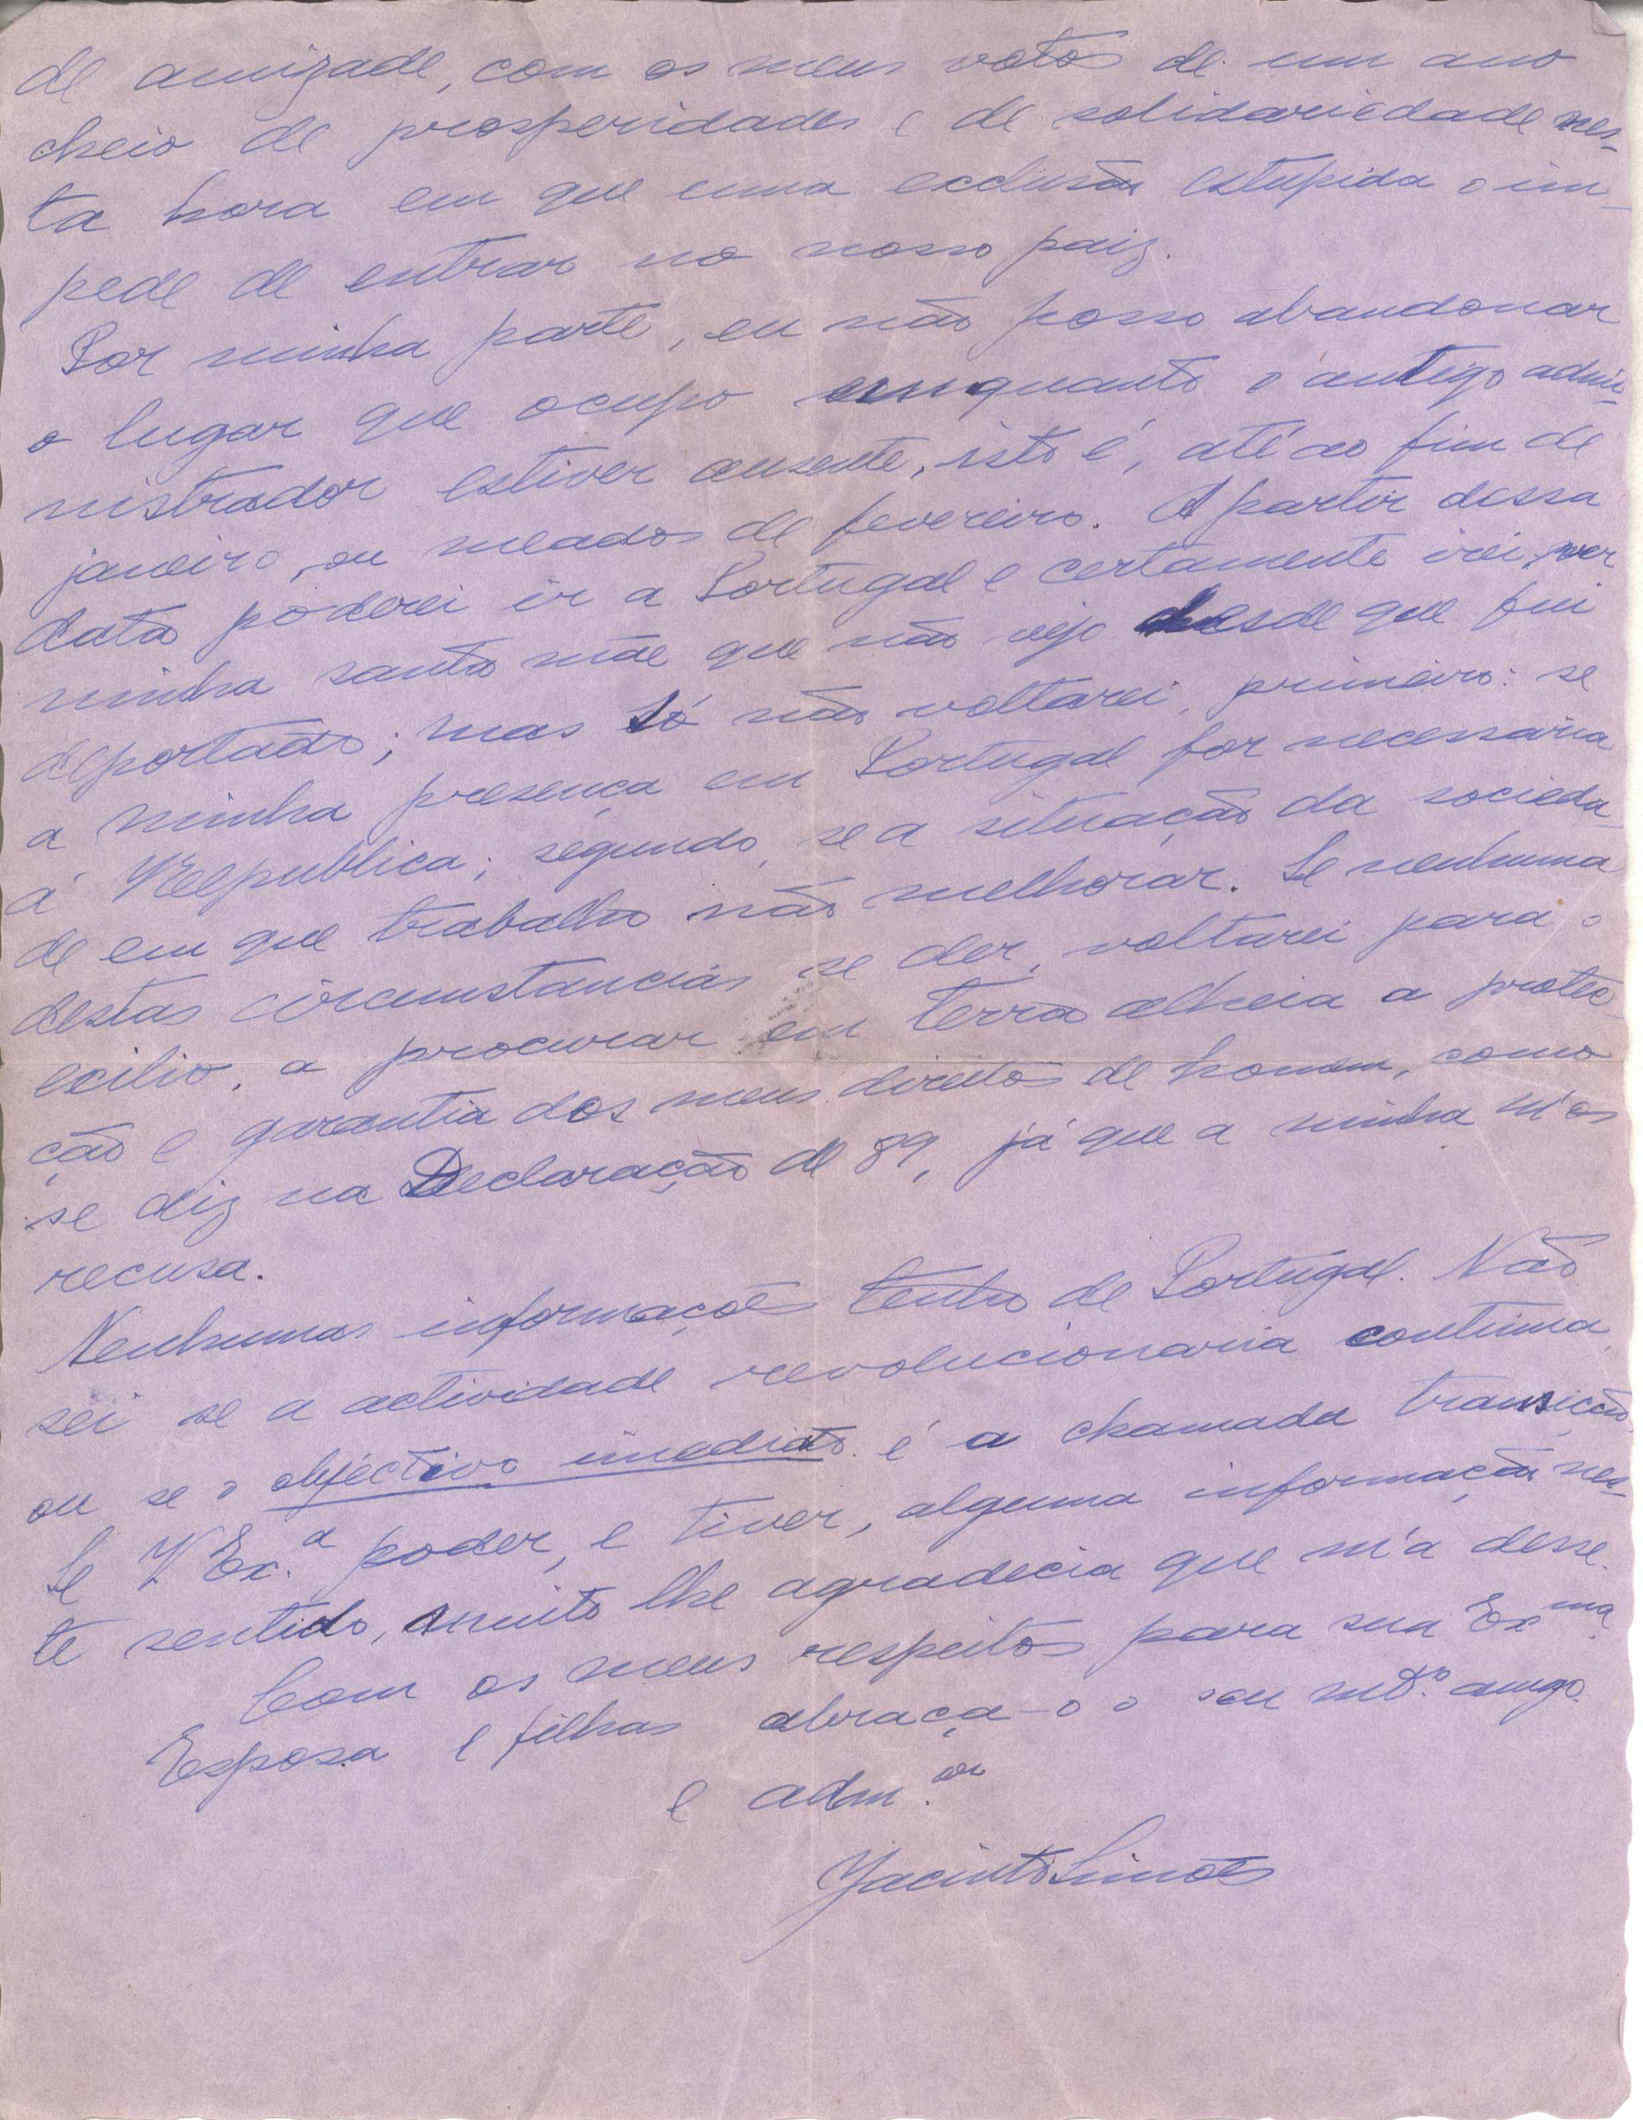 de amizade, com os meus votos de um ano
cheio de prosperidades e de solidariedade nes-
ta hora em que uma exclusão estupida o im-
pede de entrar no nosso paiz.
Por minha parte, eu não posso abandonar
o lugar que ocupo emquanto o antigo admi-
nistrador estiver ausente, isto é, até ao fim de
janeiro, ou meados de fevereiro. A partir dessa
data poderei ir a Portugal e certamente irei ver
minha santa mãe que não vejo desde que fui
deportado; mas só não voltarei, primeiro: se
a minha presença em Portugal for necessaria
á Republica; segundo, se a situação da socieda-
de em que trabalho não melhorar. Se nenhuma
destas circumstancias se der, voltarei para o
exilio, a procurar em terra alheia a protec-
ção e garantia dos meus direitos de homem, como
se diz na Declaração de 89, já que a minha m'os
recusa.
Nenhumas informações tenho de Portugal. Não
sei se a actividade revolucionaria continua,
ou se o objéctivo imediato é a chamada transicção.
Se V. Ex.ª poder, e tiver, alguma informação nes-
te sentido, muito lhe agradecia que m'a desse.
Com os meus respeitos para sua Ex.ma
Esposa e filhas abraça-o o seu mt.º amigo
e adm.or
Jacinto Simões